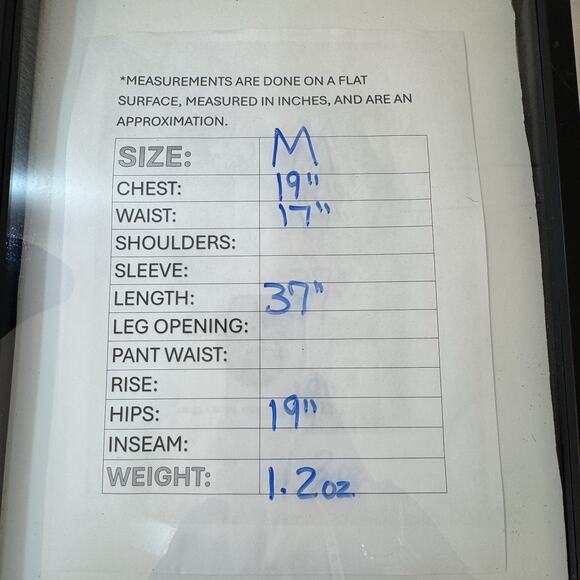 *MEASUREMENTS ARE DONE ON A FLAT
SURFACE, MEASURED IN INCHES, AND ARE AN
APPROXIMATION.
SIZE: M
CHEST: 19"
WAIST: 17"
SHOULDERS:
SLEEVE:
LENGTH: 37"
LEG OPENING:
PANT WAIST:
RISE:
HIPS: 19"
INSEAM:
WEIGHT: 1.2oz